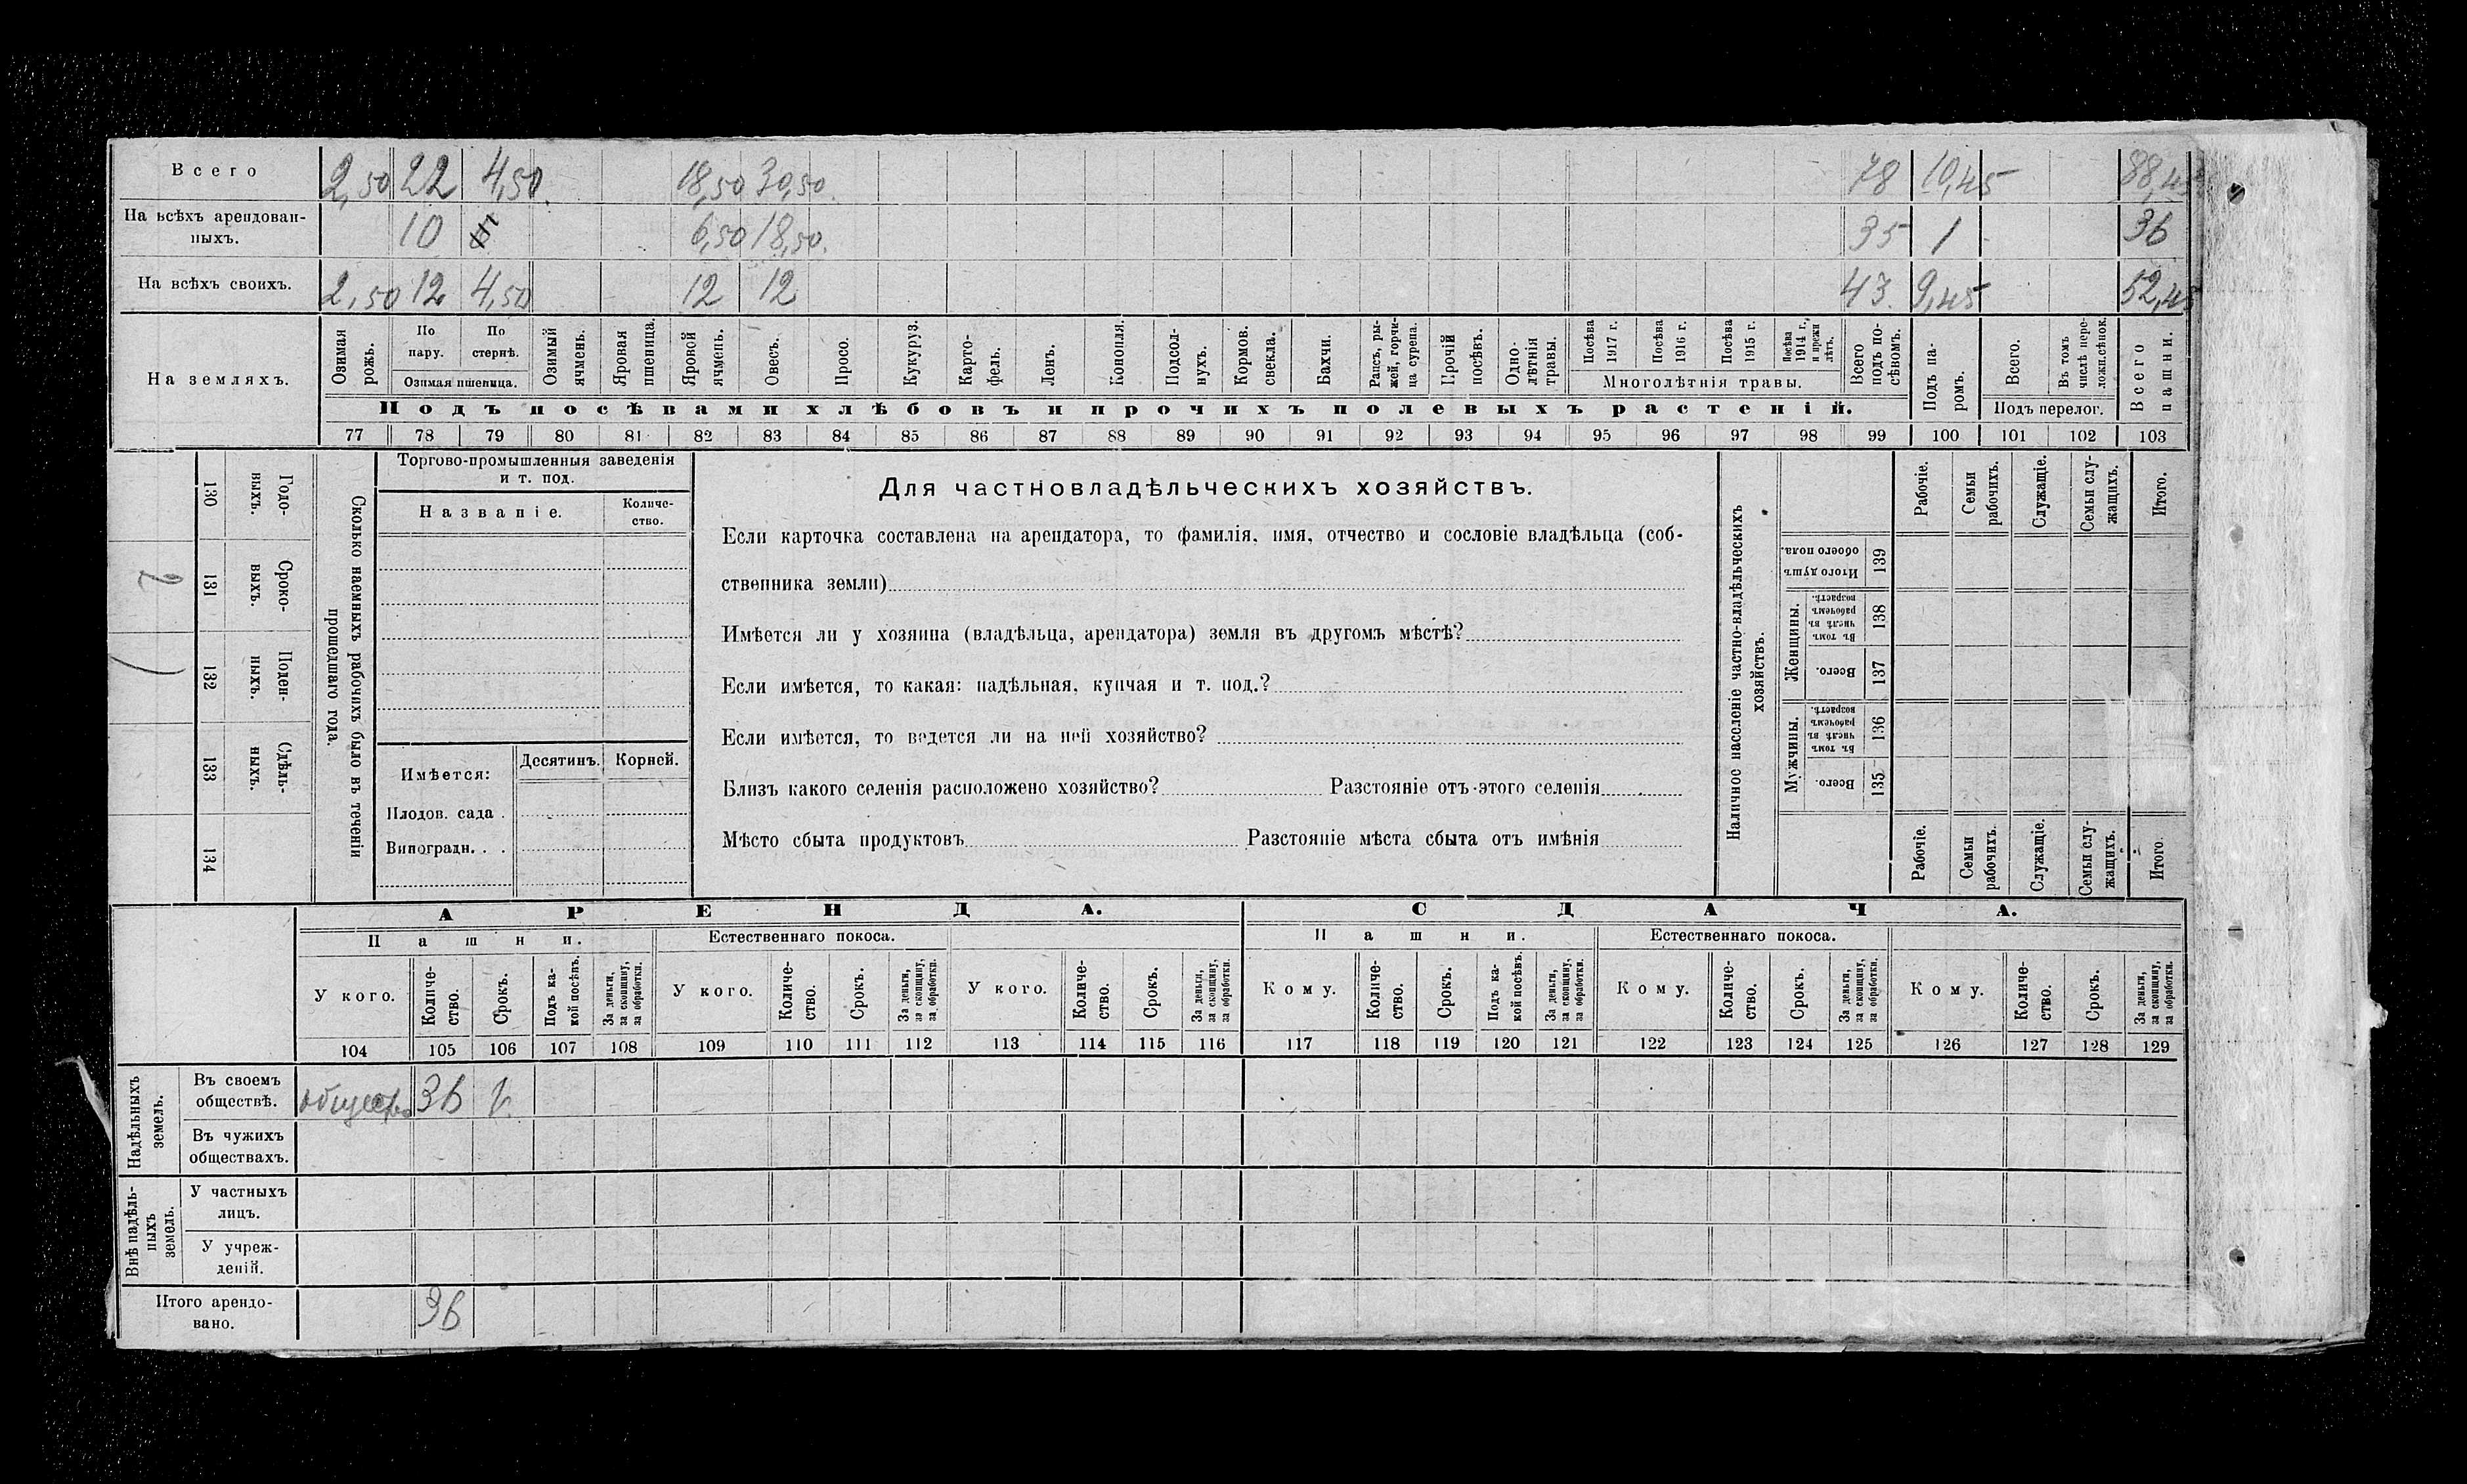 Всего 2,50 22 4,50. 18,50 30,50. 78 10,45 88,45
На всѣхъ арендован-
ныхъ. 10 6,50 18,50. 35 1 36
На всѣхъ своихъ. 2,50 12 4,50 12 12 43. 9,45 52,45
На земляхъ.
Озимая рожь.
По пару.
По стернѣ.
Озимая пшеница.
Озимый ячмень.
Яровая пшеница.
Яровой ячмень.
Овесъ.
Просо.
Кукуруз.
Карто-
фель.
Ленъ.
Конопля.
Подсол-
нухъ.
Кормов. свекла.
Бахчи.
Рапсъ, ры-
жей, горчи-
ца сурепа.
Прочій посѣвъ.
Одно-
лѣтнія травы.
Посѣва 1917 г.
Посѣва 1916 г.
Посѣва 1915 г.
Посѣва 1914 г. и прежн лѣтъ.
Многолѣтнія травы.
Всего подъ по-
сѣвомъ.
Подъ па-
ромъ.
Всего.
Въ томъ числѣ пере-
ложн.сѣнок.
Подъ перелог.
Всего пашни.
Подъ посѣвами хлѣбовъ и прочихъ полевыхъ растеній.
77 78 79 80 81 82 83 84 85 86 87 88 89 90 91 92 93 94 95 96 97 98 99 100 101 102 103
2
130 Годо-
выхъ.
131 Сроко-
выхъ.
132 Поден-
ныхъ.
133 Сдѣль-
ныхъ.
134
Сколько наемныхъ рабочихъ было въ теченіи
прошедшаго года.
Торгово-промышленныя заведенія
и т. под.
Названіе. Количе-
ство.
Имѣется: Десятинъ. Корней.
Плодов. сада .
Виноградн. . .
Для частновладѣльческихъ хозяйствъ.
Если карточка составлена на арендатора, то фамилія, имя, отчество и сословіе владѣльца (соб-
ственника земли)
Имѣется ли у хозяина (владѣльца, арендатора) земля въ другомъ мѣстѣ?
Если имѣется, то какая: надѣльная, купчая и т. под.?
Если имѣется, то ведется ли на ней хозяйство?
Близъ какого селенія расположено хозяйство? Разстояніе отъ этого селенія
Мѣсто сбыта продуктовъ Разстояніе мѣста сбыта отъ имѣнія
Наличное населеніе частно-владѣльческихъ
хозяйствъ.
Итого душъ обоего пола. 139
Женщины.
Въ томъ числѣ въ рабочемъ возрастѣ. 138
Всего. 137
Мужчины.
Въ томъ числѣ въ рабочемъ возрастѣ. 136
Всего. 135
Рабочіе.
Семьи рабочихъ.
Служащіе.
Семьи слу-
жащихъ.
Итого.
Рабочіе.
Семьи рабочихъ.
Служащіе.
Семьи слу-
жащихъ.
Итого.
АРЕНДА. СДАЧА.
Пашни. Естественнаго покоса. Пашни. Естественнаго покоса.
У кого.
Количе-
ство.
Срокъ.
Подъ ка-
кой посѣвъ.
За деньги, за скопщину, за обработки.
У кого.
Количе-
ство.
Срокъ.
За деньги, за скопщину, за обработки.
У кого.
Количе-
ство.
Срокъ.
За деньги, за скопщину, за обработки.
Кому.
Количе-
ство.
Срокъ.
Подъ ка-
кой посѣвъ.
За деньги, за скопщину, за обработки.
Кому.
Количе-
ство.
Срокъ.
За деньги, за скопщину, за обработки.
Кому.
Количе-
ство.
Срокъ.
За деньги, за скопщину, за обработки.
104 105 106 107 108 109 110 111 112 113 114 115 116 117 118 119 120 121 122 123 124 125 126 127 128 129
Надѣльныхъ земель.
Въ своемъ
обществѣ. общество 36
Въ чужихъ
обществахъ.
Внѣ надѣль-
ныхъ земель.
У частныхъ
лицъ.
У учреж-
деній.
Итого арендо-
вано. 36